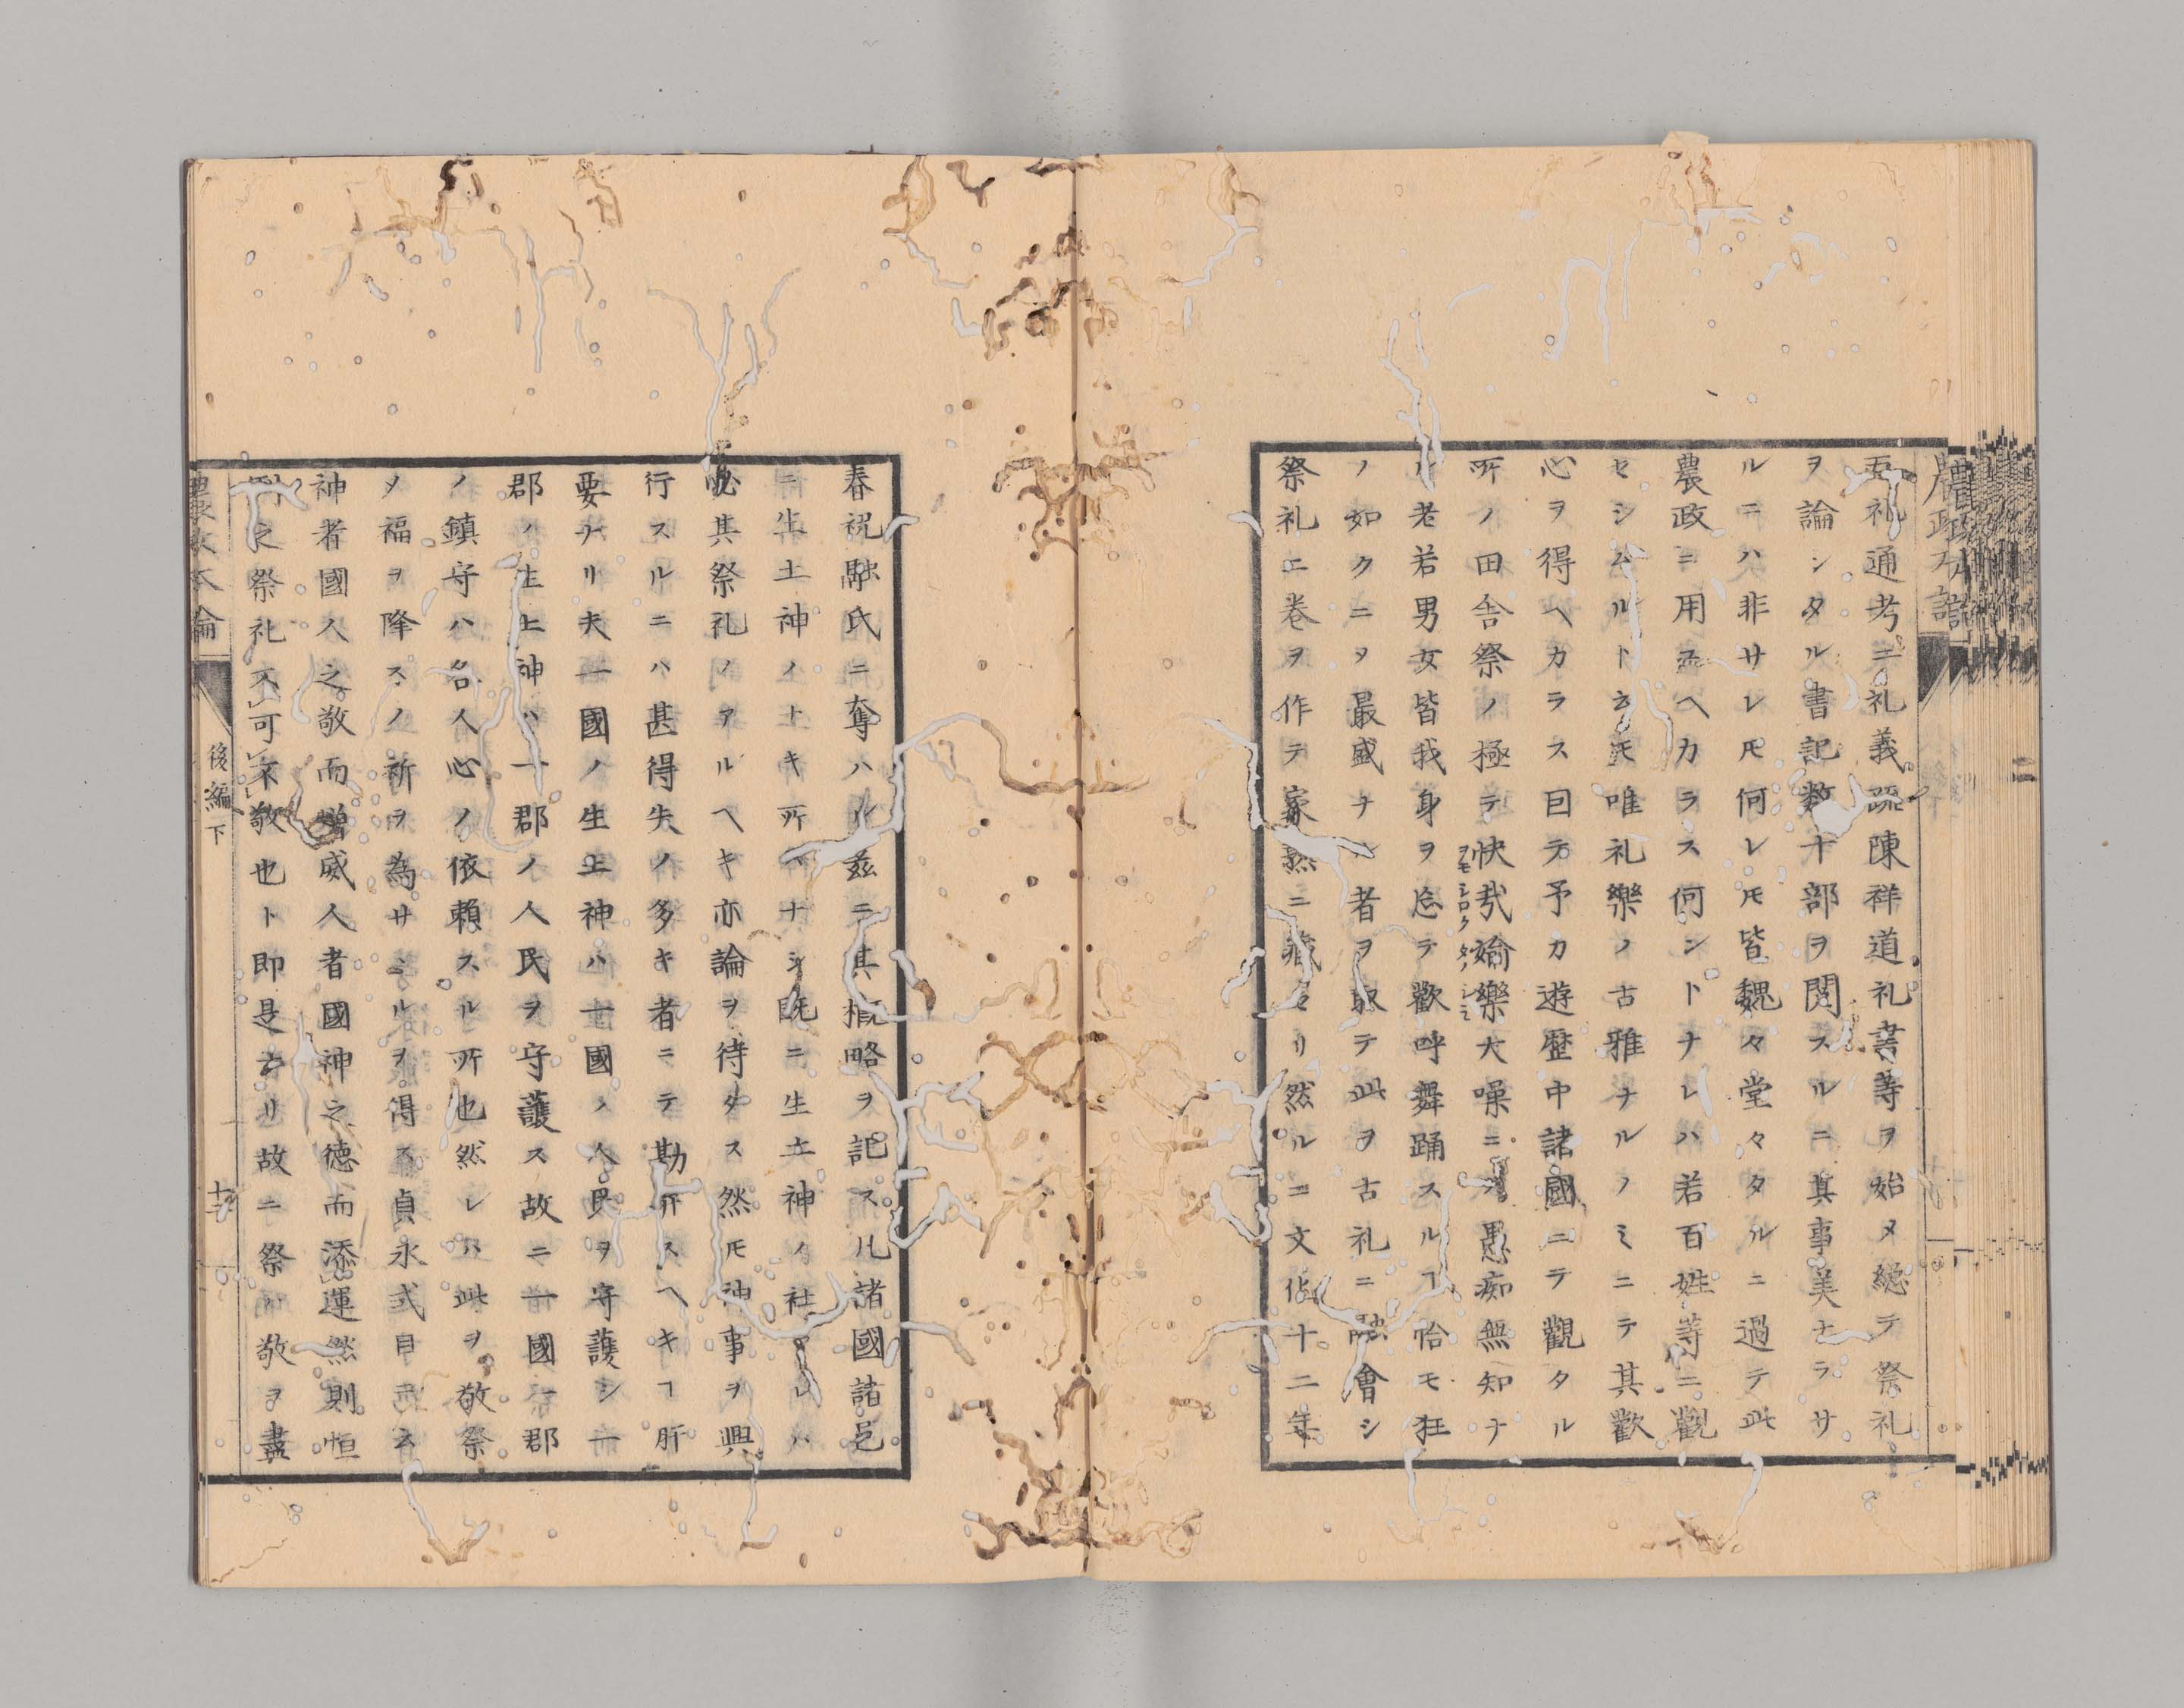 五礼通考ニ礼義疏陳祥道礼書等ヲ始メ総テ祭礼
ヲ論シタル書記数十部ヲ閲スルニ其事美ナラサ
ルニハ非サレ𪜈何レ𪜈皆魏々堂々タルニ過テ此
農政ニ用ユヘカラス何ントナレハ若百姓等ニ觀
セシムルト云𪜈唯礼樂ノ古雅ナルノミニテ其歡
心ヲ得ヘカラス因テ予カ遊歴中諸國ニテ觀タル
所ノ田舎祭ノ極テ快哉媮樂大噪ニ愚痴無知ナ
ル老若男女皆我身ヲ忘テ歡呼舞踊スルヿ恰モ狂
ノ如クニヲ最盛ナル者ヲ取テ此ヲ古礼ニ融會シ
祭礼二巻ヲ作テ家塾ニ藏メタリ然ルニ文化十二年
春祝融氏ニ奪ハル茲ニ其概略ヲ記ス凡諸國諸邑
ニ生土神ノ上ナキ所ハナシ既ニ生土神ノ社アレハ
必其祭礼ノアルヘキ亦論ヲ待タス然𪜈神事ヲ興
行スルニハ甚得失ノ多キ者ニテ勘弁スヘキヿ肝
要ナリ夫一國ノ生土神ハ一國ノ人民ヲ守護シ一
郡ノ生土神ハ一郡ノ人民ヲ守護ス故ニ一國一郡
ノ鎮守ハ各人心ノ依頼スル所也然レハ此ヲ敬祭
メ福ヲ降スノ祈ヲ為サヽルヲ得ス貞永式目ニ云
神者國人之敬而増威人者國神之德而添運然則恒
例之祭礼不可不敬也ト即是云リ故ニ祭ハ敬ヲ盡
後編下